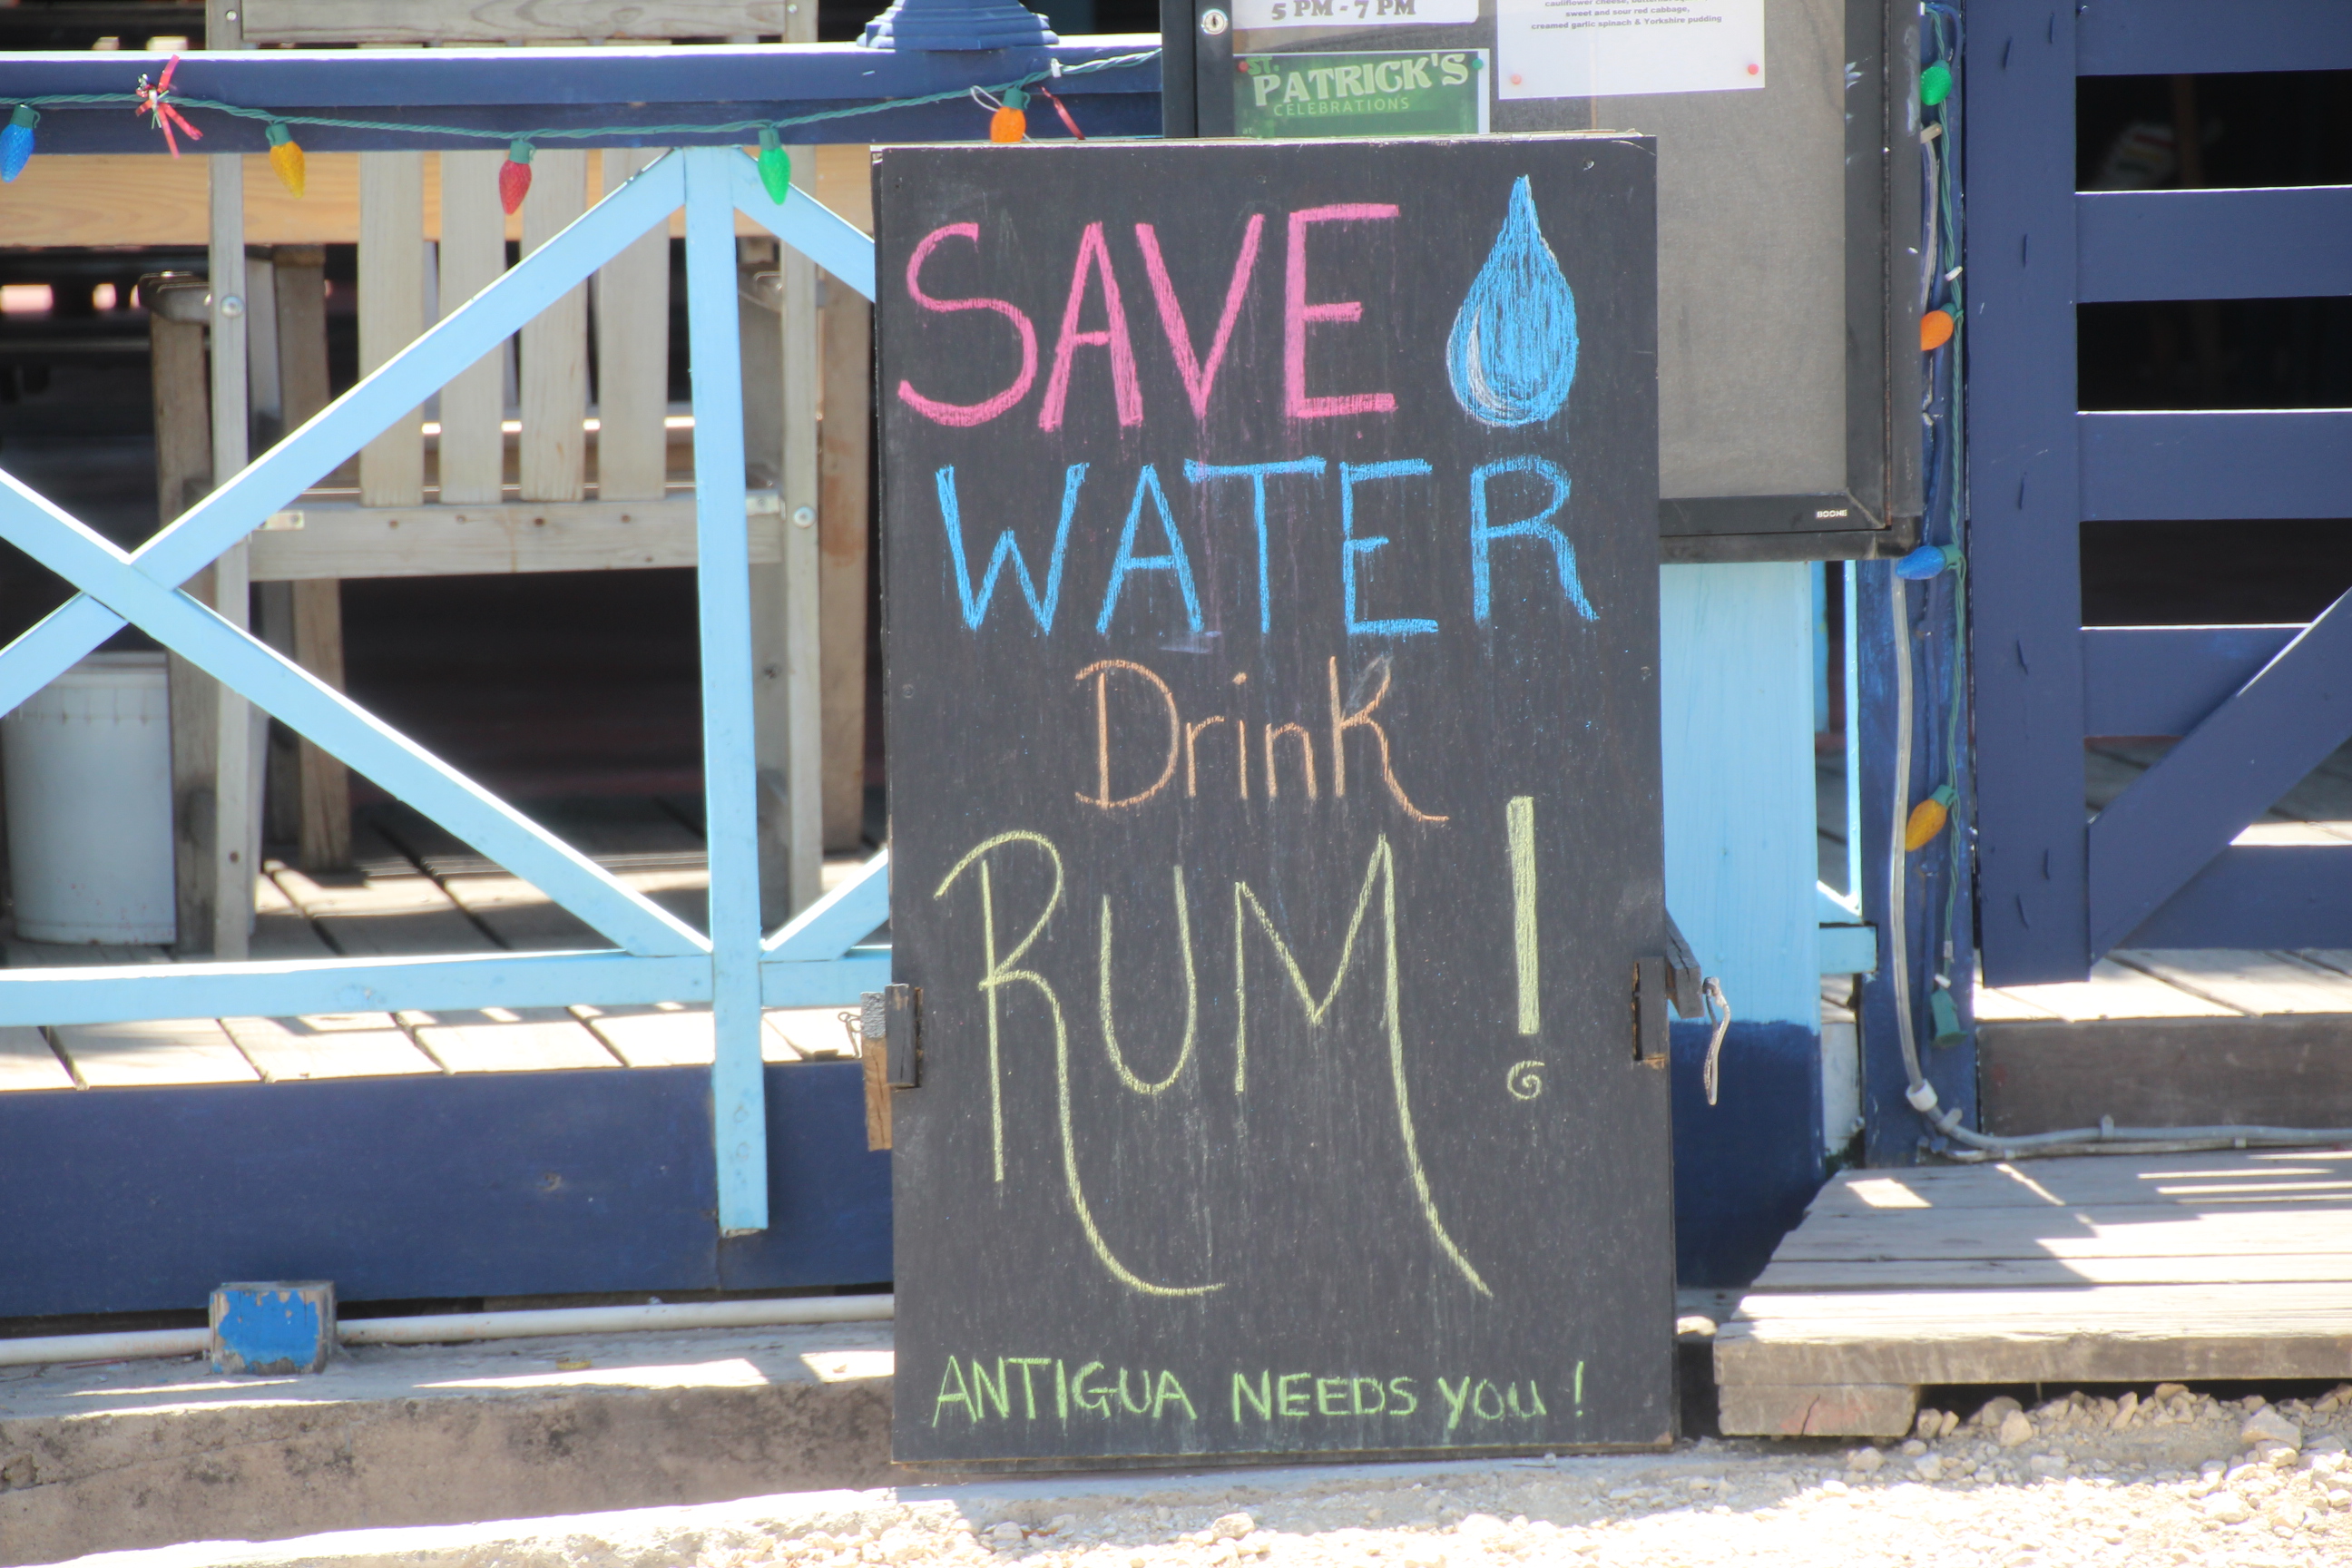 5 PM - 7 PM
ST.
PATRICK'S
CELEBRATIONS
sweet and sour red cabbage,
creamed garlic spinach & Yorkshire pudding
SAVE
WATER
Drink
RUM!
ANTIGUA NEEDS YOU!
BOONE